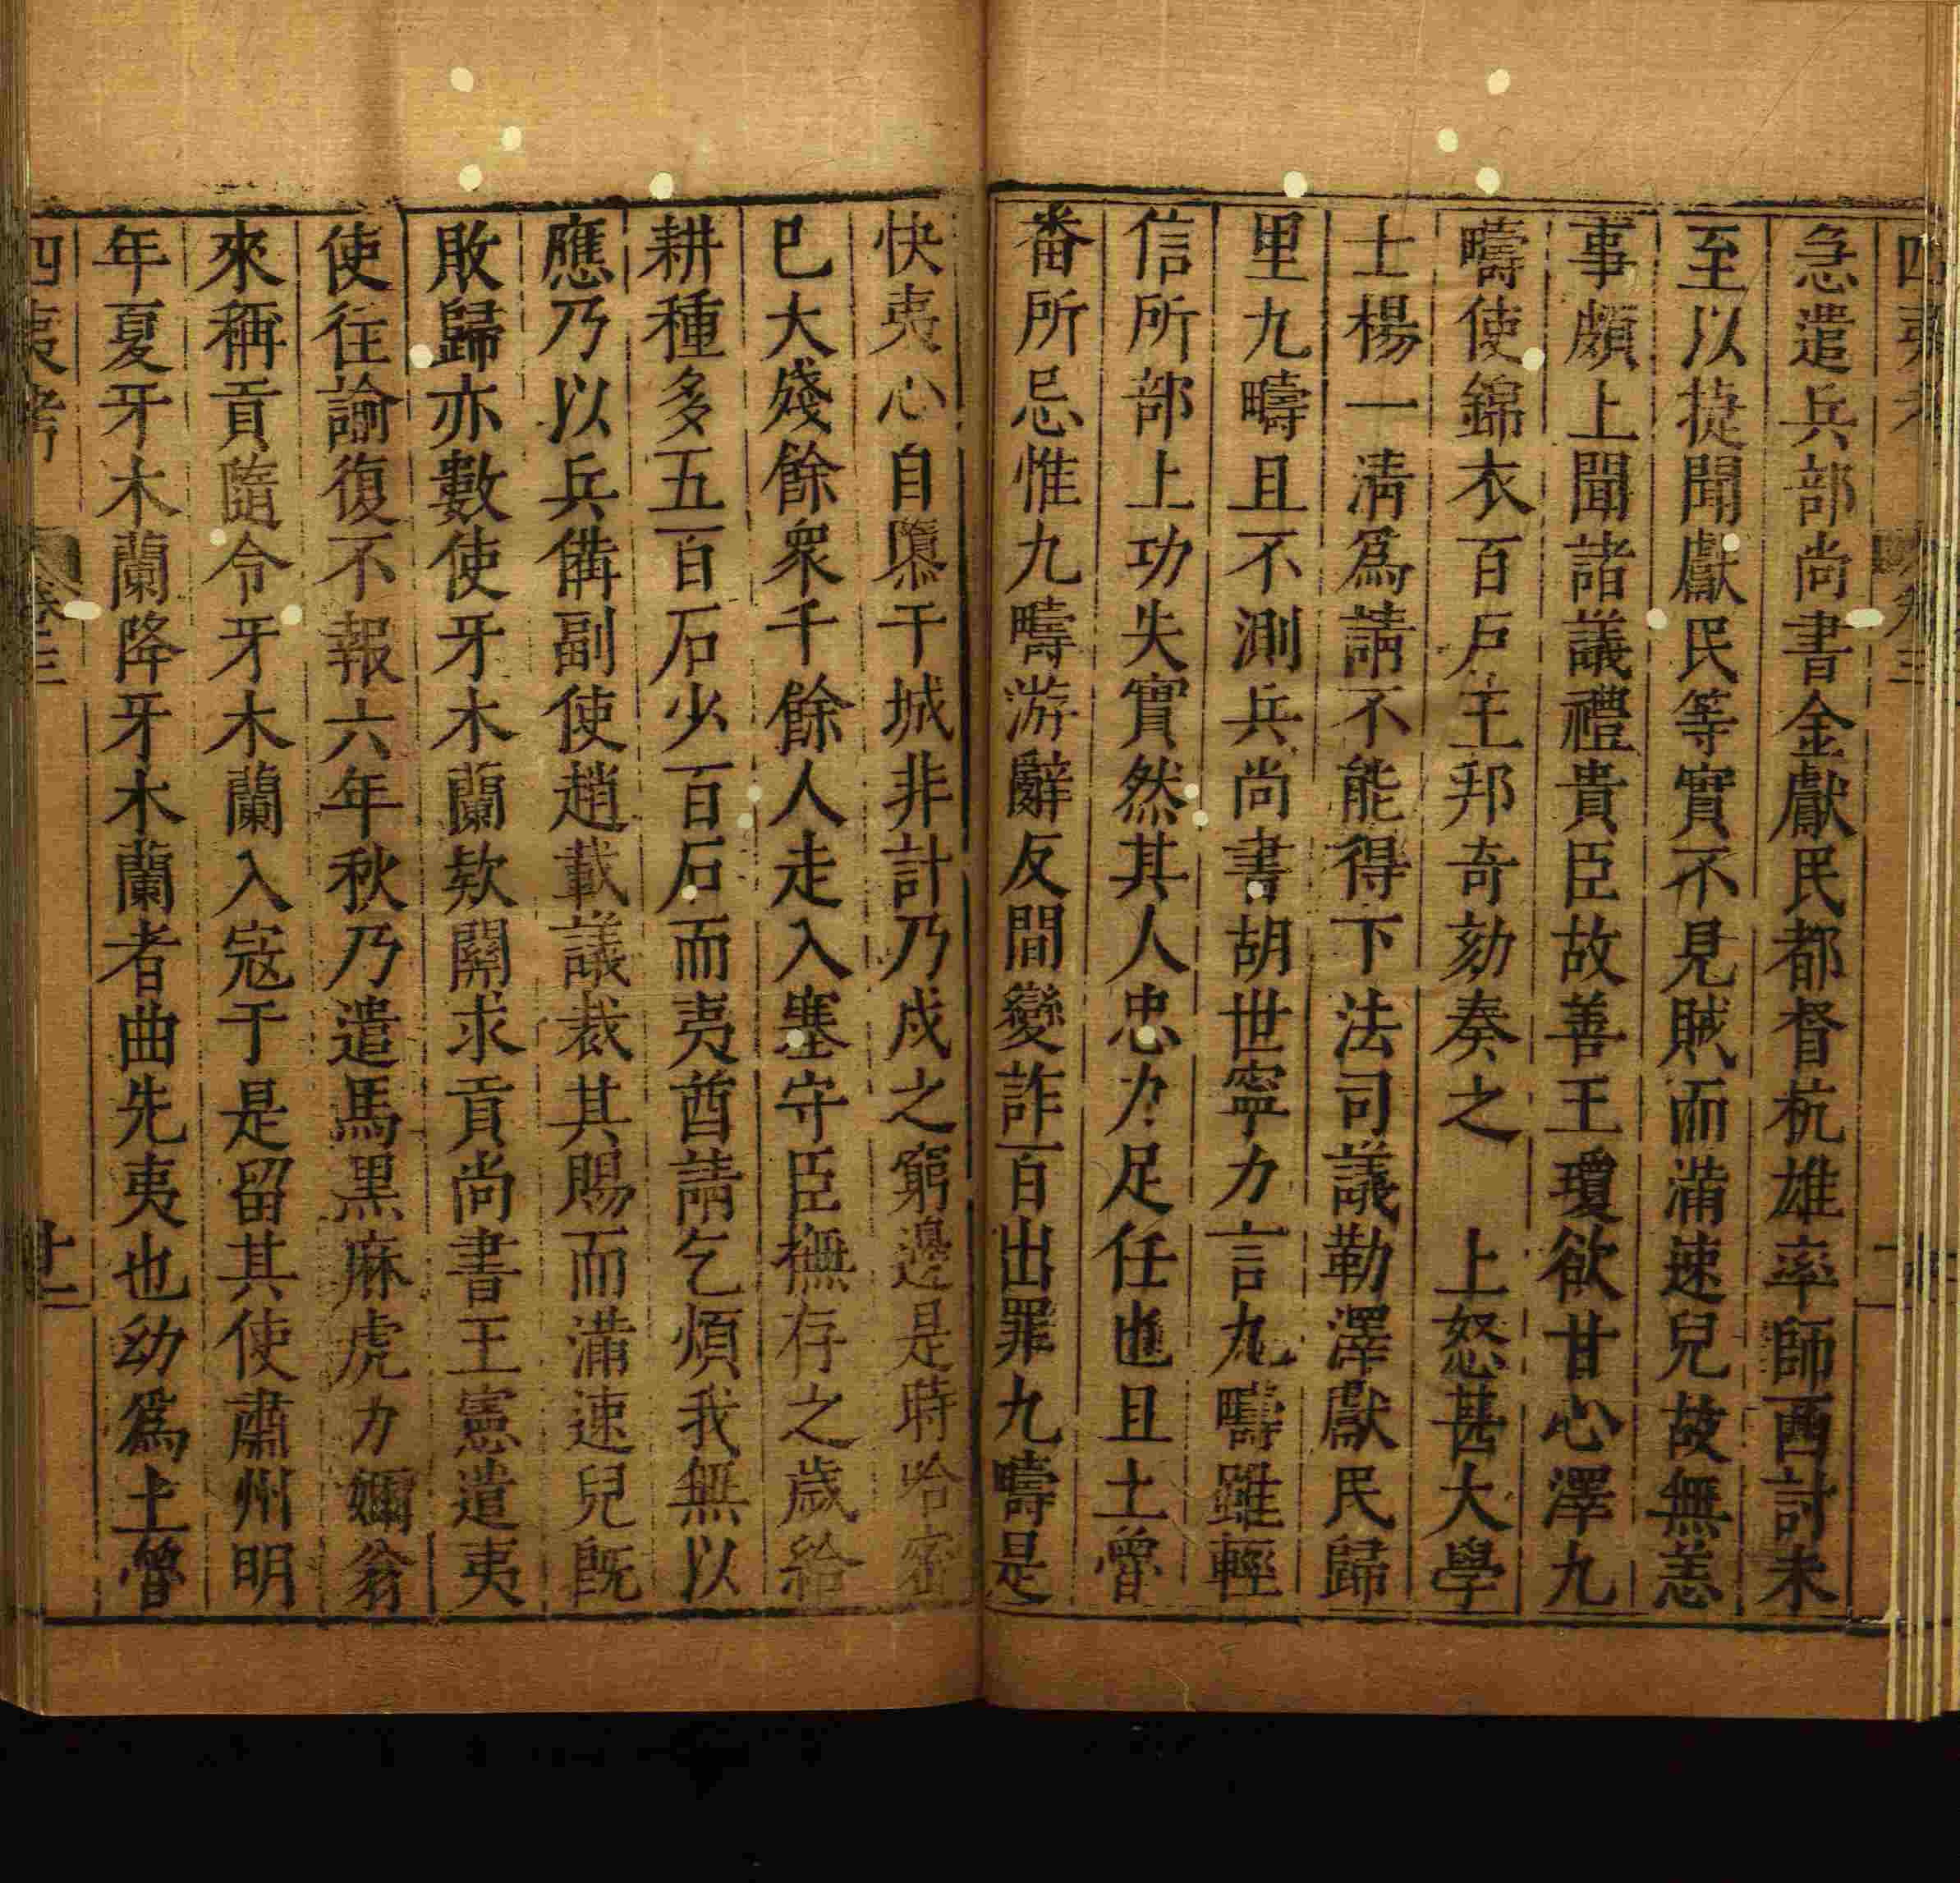 急遣兵部尚書金獻民都督杭雄率師西討未
至以捷聞獻民等實不見賊而滿速兒故無恙
事頗上聞諸議禮貴臣故善王瓊欲甘心澤九
疇使錦衣百戶王邦奇劾奏之 上怒甚大學
士楊一淸爲請不能得下法司議勒澤獻民歸
里九疇且不測兵尚書胡世寧力言九疇雖輕
信所部上功失實然其人忠力足任也且土魯
番所忌惟九疇游辭反間變詐百出罪九疇是
快夷心自隳干城非計乃戍之窮邊是時哈密
巳大殘餘衆千餘人走入塞守臣撫存之歲給
耕種多五百石少百石而夷酋請乞煩我無以
應乃以兵備副使趙載議裁其賜而滿速兒旣
敗歸亦數使牙木蘭欵關求貢尚書王憲遣夷
使往諭復不報六年秋乃遣馬黑麻虎力嬭翁
來稱貢隨令牙木蘭入宼于是留其使肅州明
年夏牙木蘭降牙木蘭者曲先夷也幼爲土魯
四夷考 卷三 廿一